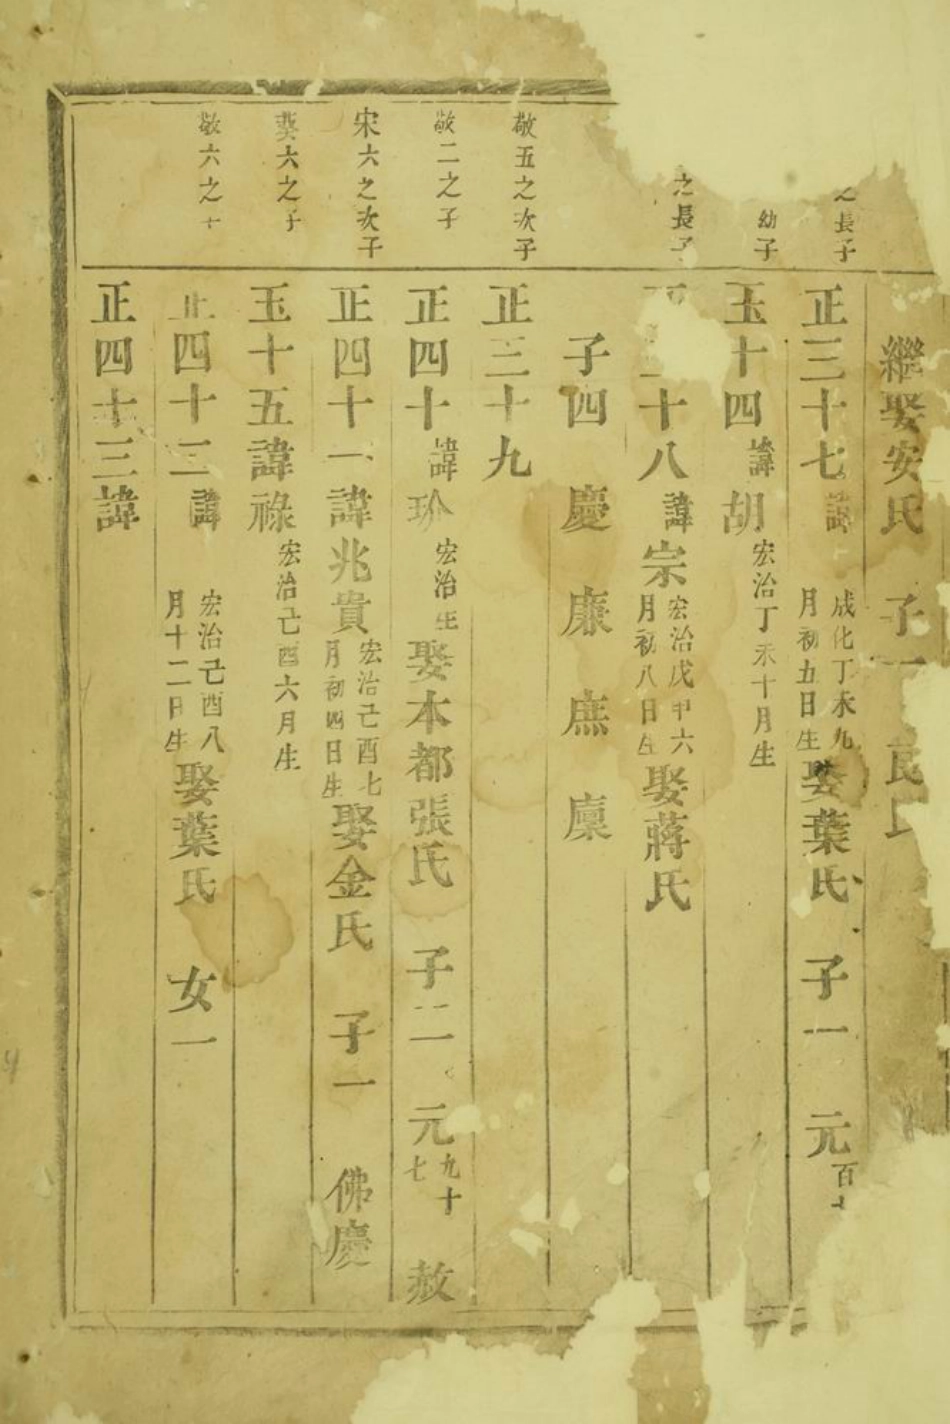 繼娶安氏 子一 良
之長子 正三十七諱 成化丁未九月初五日生 娶葉氏 子一 元百
幼子 玉十四諱胡 宏治丁未十月生
之長子 十八諱宗 宏治戊申六月初八日生 娶蔣氏
子四 慶 廉 庶 廩
敬五之次子 正三十九
敬二之子 正四十諱玠 宏治生 娶本都張氏 子二 元九十七 赦
宋六之次子 正四十一諱兆貴 宏治己酉七月初四日生 娶金氏 子一 佛慶
六之子 玉十五諱祿 宏治己酉六月生
敬六之子 正四十二諱 宏治己酉八月十二日生 娶葉氏 女一
正四十三諱